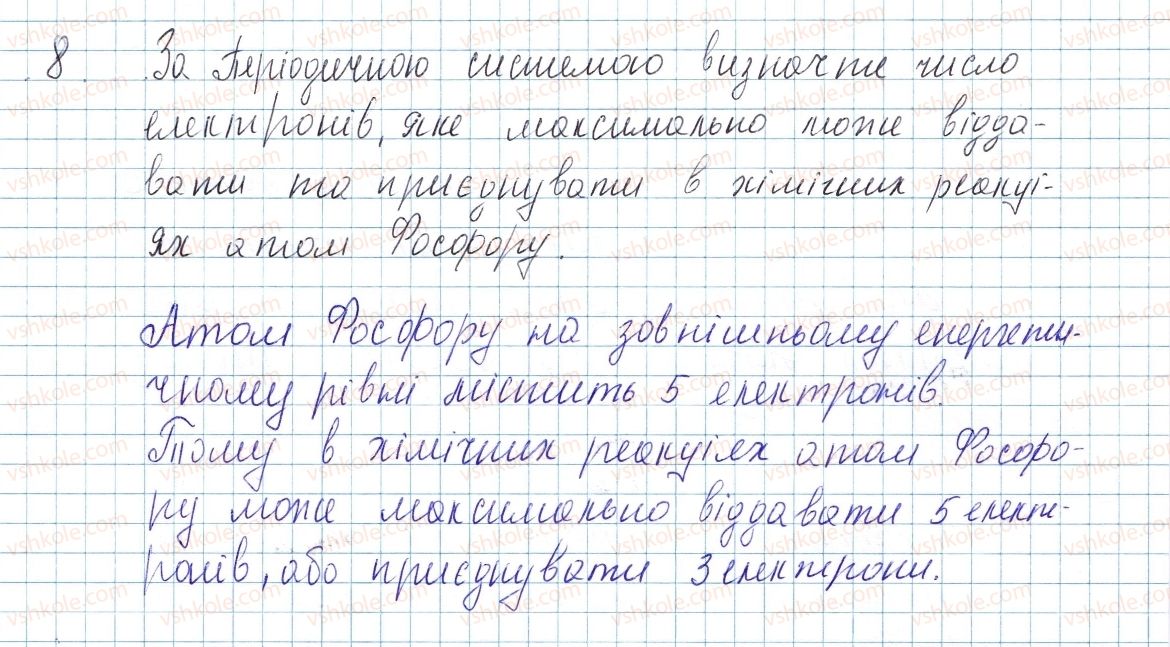 8. За Періодичною системою визначте число
електронів, яке максимально може відда-
вати та приєднувати в хімічних реакці-
ях атом Фосфору.
Атом Фосфору на зовнішньому енергети-
чному рівні містить 5 електронів.
Тому в хімічних реакціях атом Фосфо-
ру може максимально віддавати 5 елект-
ронів, або приєднувати 3 електрони.